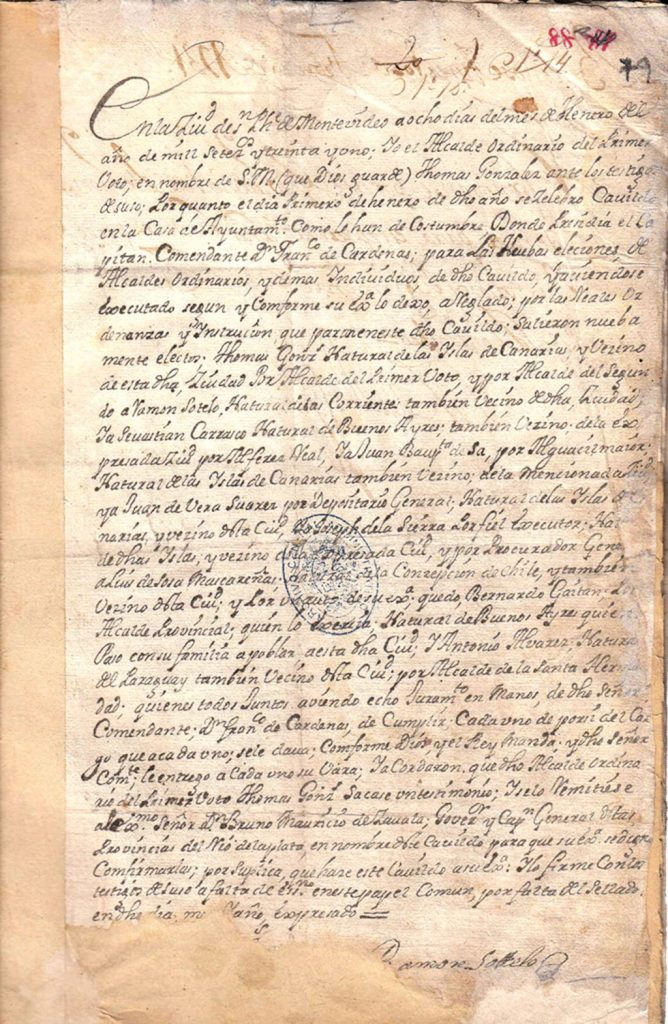 79
En la Ziud de sn Phe de Montevideo a ocho dias del mes de Henero del
año de mill setezs y treinta y ono; Yo el Alcalde Ordinario del Primer
Voto; en nombre de S.M. (que Dios guarde) Thomas Gonzalez ante los testigos
de suso; Por quanto el dia Primero de henero de dho año se Zelebro Cavildo
en la Casa de Ayuntamto Como lo han de Costumbre Donde Presidia el Ca
pitan Comendante Dn Franco de Cardenas; para Las Nuebas eleciones de
Alcaldes Ordinarios, y demas Individuos, de dho Cavildo, y aviendose
executado segun y Comforme su exa lo dexó, aReglado; por las Reales Or
denanzas y Instrucion que para en este dho Cavildo; Salieron nueba
mente electos: Thomas Gonz Natural de las Islas de Canarias, y Vezino
de esta dha, Ziudad Por Alcalde del Primer Voto, y por Alcalde del Segun
do a Ramon Sotelo, Natural de las Corrientes también Vecino de dha, Ciudad;
Ya Sevastian Carrasco Natural de Buenos Ayres; también Vezino de la ex
presada Ziud por Alferez Real, Ya Juan Bauta de Sa, por Alguacil maior;
Natural de las Islas de Canarias también Vezino; de la Mencionada
ya Juan de Vera Suarez por Depositario General; Natural de las Islas de Ca
narias, y vezino desta Ciud, Ya Joseph de la Sierra Por fiel Executor; Nat
de dhas Islas, y vezino de la expresada Ciud, y por Procurador Gene
a Luis de Sosa Mascareñas; de la Concepcion de Chile, y también
Vezino desta Ciud; y Por de su exa; quedo, Bernardo Gaitan
Alcalde Provincial; quien lo exerzia Natural de Buenos Ayres quien
Paso con su familia a poblar a esta dha Ciud; Y Antonio Alvarez, Natura
del Paraguay también Vecino desta Ciud; por Alcalde de la Santa Herm
dad; quienes todos Juntos aviendo echo Juramto en Manos, de dho Señor
Comendante; Dn Franco de Cardenas, de Cumplir; Cada uno de por si del Car
go que a cada uno, se le dava; Comforme Dios y el Rey Manda; y dho Señor
Comte le entrego a Cada uno su Vara; Ya Cordaron, que dho Alcalde Ordina
rio del Primer Voto Thomas Gonz Sacase un testimonio; Y se lo Remitiese
al exmo Señor Dn Bruno Mauricio de Zavala; Govr y Capn General destas
Provincias del Rio de la plata, en nombre deste Cavildo para que su exa se digne
Comfirmarlas; por Suplica, que haze este Cavildo a su exa: Y lo firme Con los
testigos de suso a falta de esno en este papel Comun, por falta del Sellado
en dho dia mes y año, expresado =
Ramon Sottelo